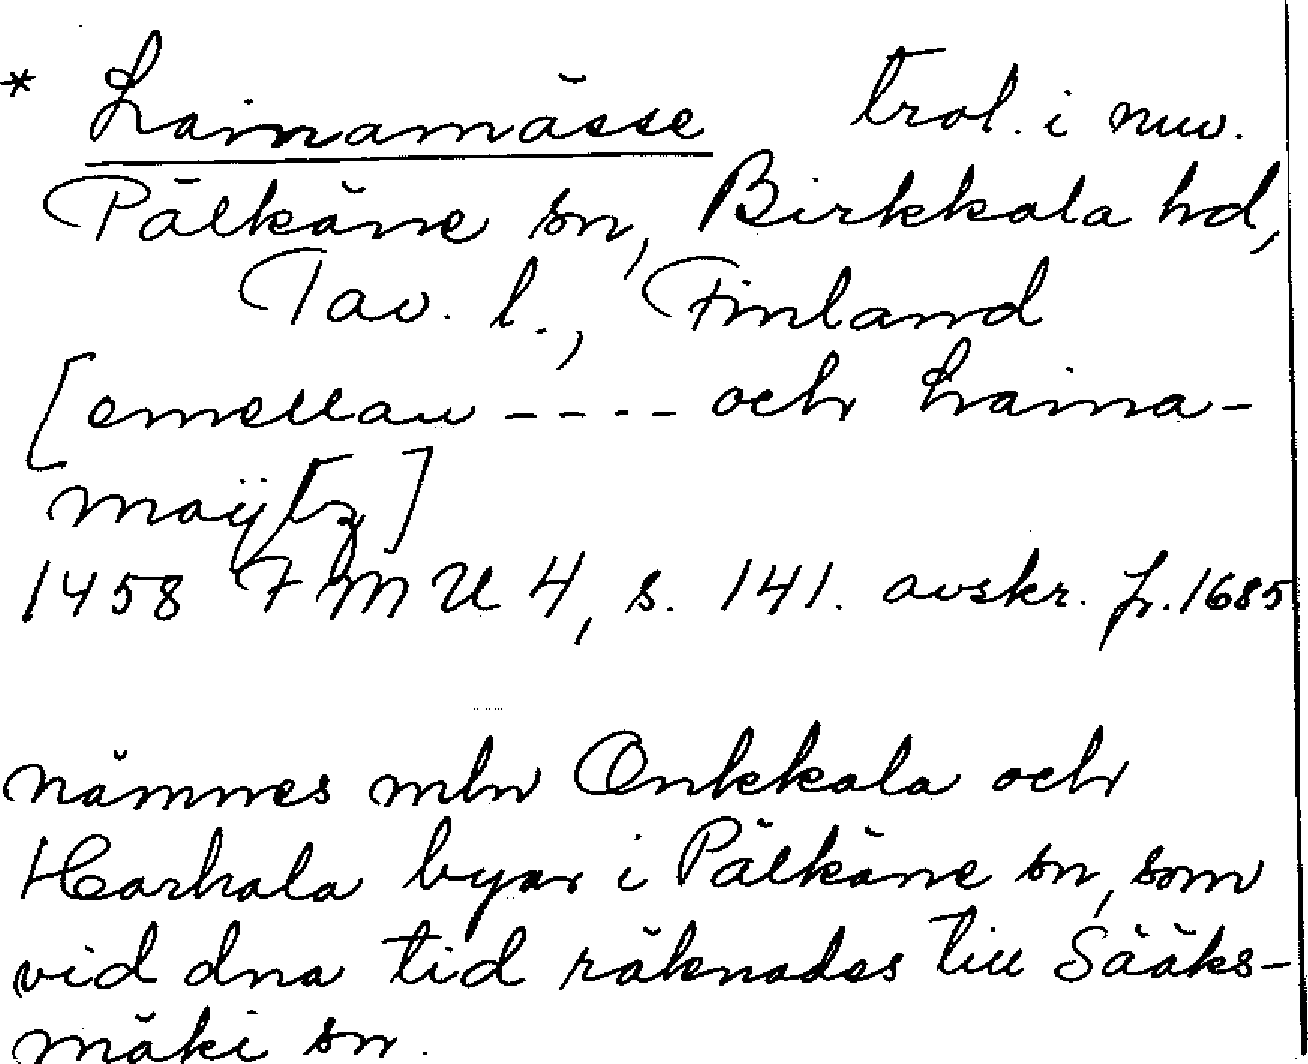 * Lainamässe trol. i nuv.
Pälkäne sn, Birkkala hd,
Tav. l., Finland
[emellan ---- och Laina-
maÿ[z]
1458 FMU 4, s. 141. avskr. fr. 1685
nämnes mln Onkkala och
Harhala byar i Pälkäne sn, som
vid dna tid räknades till Sääks-
mäki sn.